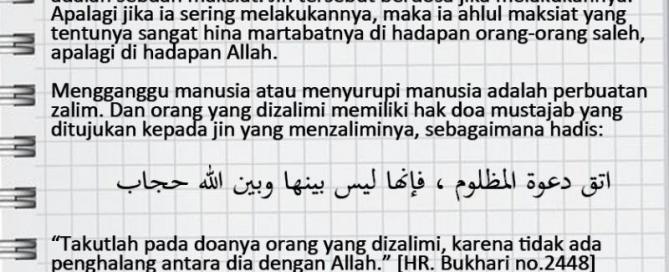 adalah sebuah maksiat. Jin tersebut berdosa jika melakukannya.
Apalagi jika ia sering melakukannya, maka ia ahlul maksiat yang
tentunya sangat hina martabatnya di hadapan orang-orang saleh,
apalagi di hadapan Allah.
Mengganggu manusia atau menyurupi manusia adalah perbuatan
zalim. Dan orang yang dizalimi memiliki hak doa mustajab yang
ditujukan kepada jin yang menzaliminya, sebagaimana hadis:
اتق دعوة المظلوم ، فإنها ليس بينها وبين الله حجاب
“Takutlah pada doanya orang yang dizalimi, karena tidak ada
penghalang antara dia dengan Allah.” [HR. Bukhari no.2448]